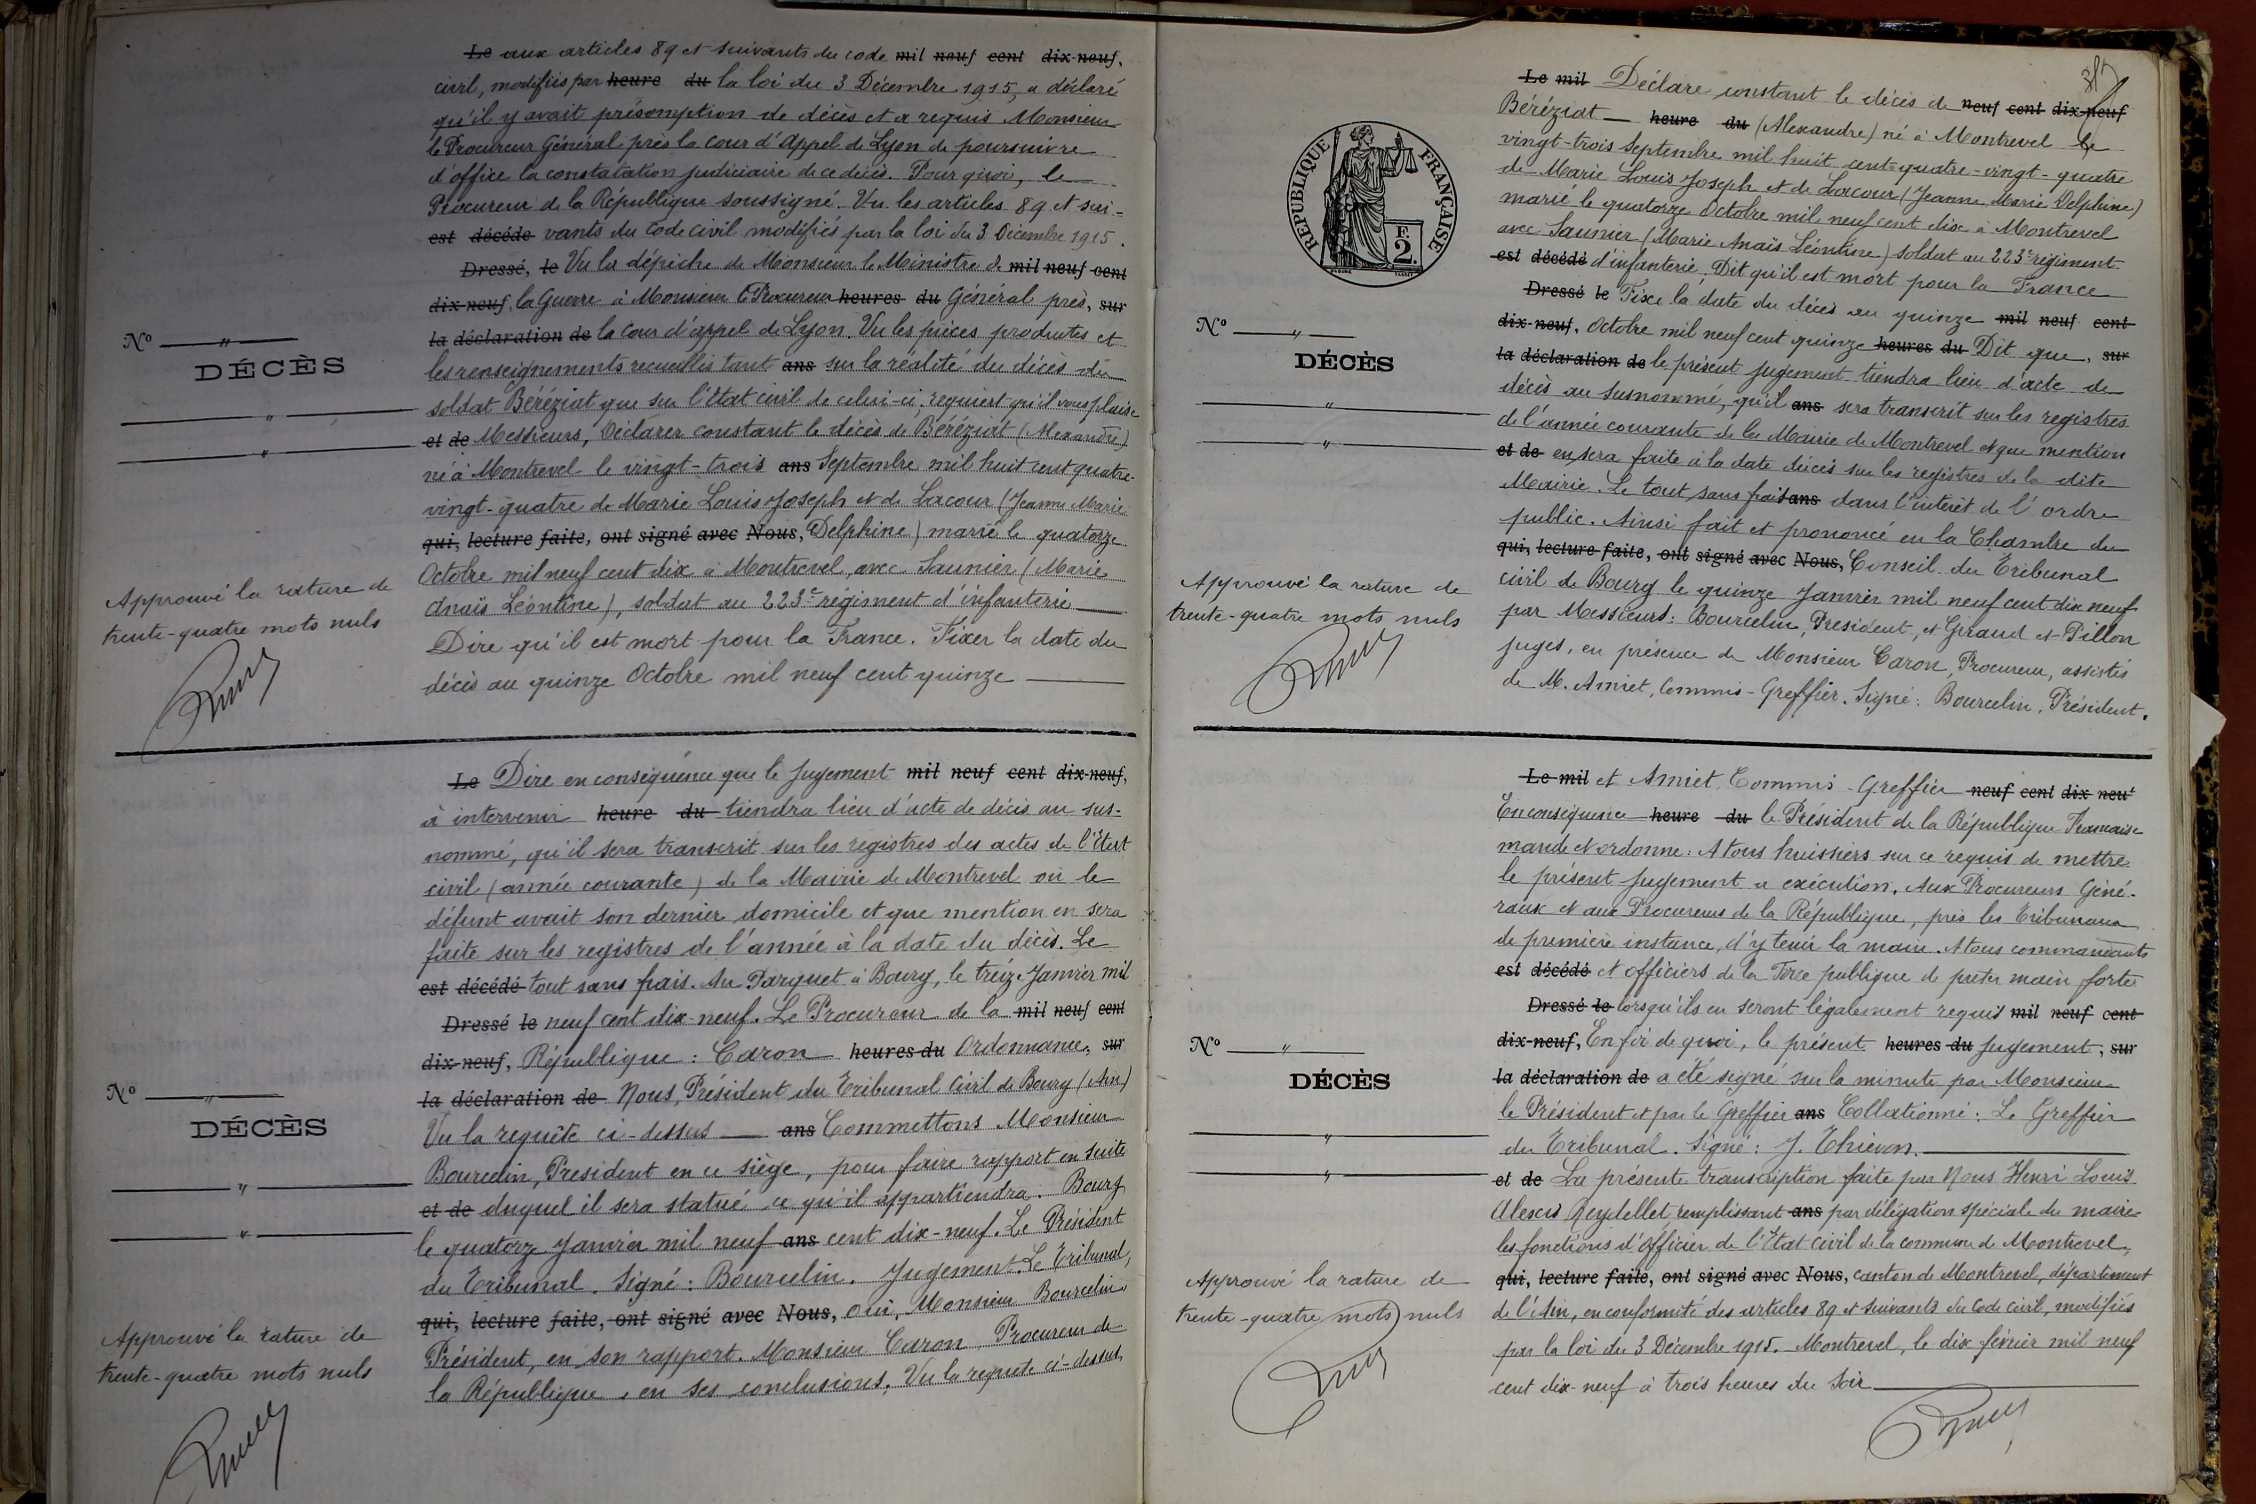 Le aux articles 89 et suivants du code mil neuf cent dix-neuf,
civil, modifiés par heure du la loi du 3 Décembre 1915, a déclaré
qu'il y avait présomption de décès et a requis Monsieur
le Procureur Général près la cour d'Appel de Lyon de poursuivre
d'office la constatation judiciaire de ce décès. Pour quoi, le
Procureur de la République soussigné. Vu les articles 89 et sui-
est décédé vants du Code civil modifiés par la loi du 3 Décembre 1915.
Dressé, le Vu la dépêche de Monsieur le Ministre de mil neuf cent
dix-neuf, la Guerre à Monsieur le Procureur heures du Général près, sur
la déclaration de la Cour d'appel de Lyon. Vu les pièces produites et
les renseignements recueillis tant ans sur la réalité du décès du
soldat Béréziat que sur l'Etat civil de celui-ci, requiert qu'il vous plaise
et de Messieurs, Déclarer constant le décès de Béréziat (Alexandre)
né à Montrevel le vingt-trois ans Septembre mil huit cent quatre-
vingt-quatre de Marie Louis Joseph et de Lacour (Jeanne Marie
qui, lecture faite, ont signé avec Nous, Delphine) marié le quatorze
Octobre mil neuf cent dix à Montrevel, avec Saunier (Marie
Anaïs Léontine), soldat au 223e régiment d'infanterie
Dire qu'il est mort pour la France. Fixer la date du
décès au quinze Octobre mil neuf cent quinze
No "
DÉCÈS
"
"
Approuvé la rature de
trente-quatre mots nuls
Le Dire en conséquence que le jugement mil neuf cent dix-neuf,
à intervenir heure du tiendra lieu d'acte de décès au sus-
nommé, qu'il sera transcrit sur les registres des actes de l'Etat
civil (année courante) de la Mairie de Montrevel où le
défunt avait son dernier domicile et que mention en sera
faite sur les registres de l'année à la date du décès. Le
est décédé tout sans frais. Au Parquet à Bourg, le treize Janvier mil
Dressé le neuf cent dix-neuf. Le Procureur de la mil neuf cent
dix-neuf, République : Caron heures du Ordonnance, sur
la déclaration de Nous, Président du Tribunal Civil de Bourg (Ain)
Vu la requête ci-dessus ans Commettons Monsieur
Bourcelin, Président en ce siège, pour faire rapport en suite
et de duquel il sera statué ce qu'il appartiendra. Bourg
le quatorze Janvier mil neuf ans cent dix-neuf. Le Président
du Tribunal. Signé : Bourcelin. Jugement. Le Tribunal,
qui, lecture faite, ont signé avec Nous, oui, Monsieur Bourcelin
Président, en son rapport. Monsieur Caron, Procureur de
la République, en ses conclusions, Vu la requête ci-dessus
No "
DÉCÈS
"
"
Approuvé la rature de
trente-quatre mots nuls
Le mil Déclare constant le décès de neuf cent dix-neuf
Béréziat heure du (Alexandre) né à Montrevel le
vingt-trois Septembre mil huit cent quatre-vingt-quatre
de Marie Louis Joseph et de Lacour (Jeanne Marie Delphine)
marié le quatorze Octobre mil neuf cent dix à Montrevel
avec Saunier (Marie Anaïs Léontine) soldat au 223e régiment
est décédé d'infanterie. Dit qu'il est mort pour la France
Dressé le Fixe la date du décès au quinze mil neuf cent
dix-neuf, Octobre mil neuf cent quinze heures du Dit que, sur
la déclaration de le présent jugement tiendra lieu d'acte de
décès au susnommé, qu'il ans sera transcrit sur les registres
de l'année courante de la Mairie de Montrevel et que mention
et de en sera faite à la date décès sur les registres de la dite
Mairie. Le tout sans frais ans dans l'intérêt de l'ordre
public. Ainsi fait et prononcé en la Chambre du
qui, lecture faite, ont signé avec Nous, Conseil du Tribunal
civil de Bourg le quinze Janvier mil neuf cent dix neuf
par Messieurs : Bourcelin, Président, et Giraud et Pillon
juges, en présence de Monsieur Caron, Procureur, assistés
de M. Amiet, Commis-Greffier. Signé : Bourcelin, Président.
RÉPUBLIQUE FRANÇAISE
F.
2.
No "
DÉCÈS
"
"
Approuvé la rature de
trente-quatre mots nuls
Le mil et Amiet Commis-Greffier neuf cent dix neuf
En conséquence heure du le Président de la République Française
mande et ordonne : A tous huissiers sur ce requis de mettre
le présent jugement à exécution. Aux Procureurs Géné-
raux et aux Procureurs de la République, près les Tribunaux
de première instance, d'y tenir la main. A tous commandants
est décédé et officiers de la Force publique de prêter main forte
Dressé le lorsqu'ils en seront légalement requis mil neuf cent
dix-neuf, En foi de quoi, le présent heures du jugement, sur
la déclaration de a été signé sur la minute par Monsieur
le Président et par le Greffier ans Collationné : Le Greffier
du Tribunal. Signé : J. Thievon.
et de La présente transcription faite par Nous Henri Louis
Alexis Reydellet remplissant ans par délégation spéciale du maire
les fonctions d'Officier de l'Etat Civil de la commune de Montrevel,
qui, lecture faite, ont signé avec Nous, canton de Montrevel, département
de l'Ain, en conformité des articles 89 et suivants du Code civil, modifiés
par la loi du 3 Décembre 1915. Montrevel, le dix février mil neuf
cent dix-neuf à trois heures du soir
No "
DÉCÈS
"
"
Approuvé la rature de
trente-quatre mots nuls